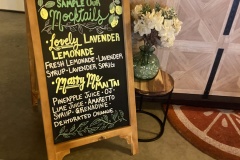 SAMPLE OUR
Mocktails
Lovely LAVENDER
LEMONADE
FRESH LEMONADE · LAVENDER
SYRUP · LAVENDER SPRIG
Marry Me
MAI TAI
PINEAPPLE JUICE · OJ ·
LIME JUICE · AMARETTO
SYRUP · GRENADINE ·
DEHYDRATED ORANGE